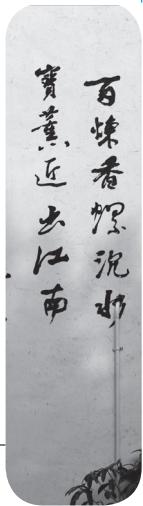 百煉香螺沉水
寶薰近出江南